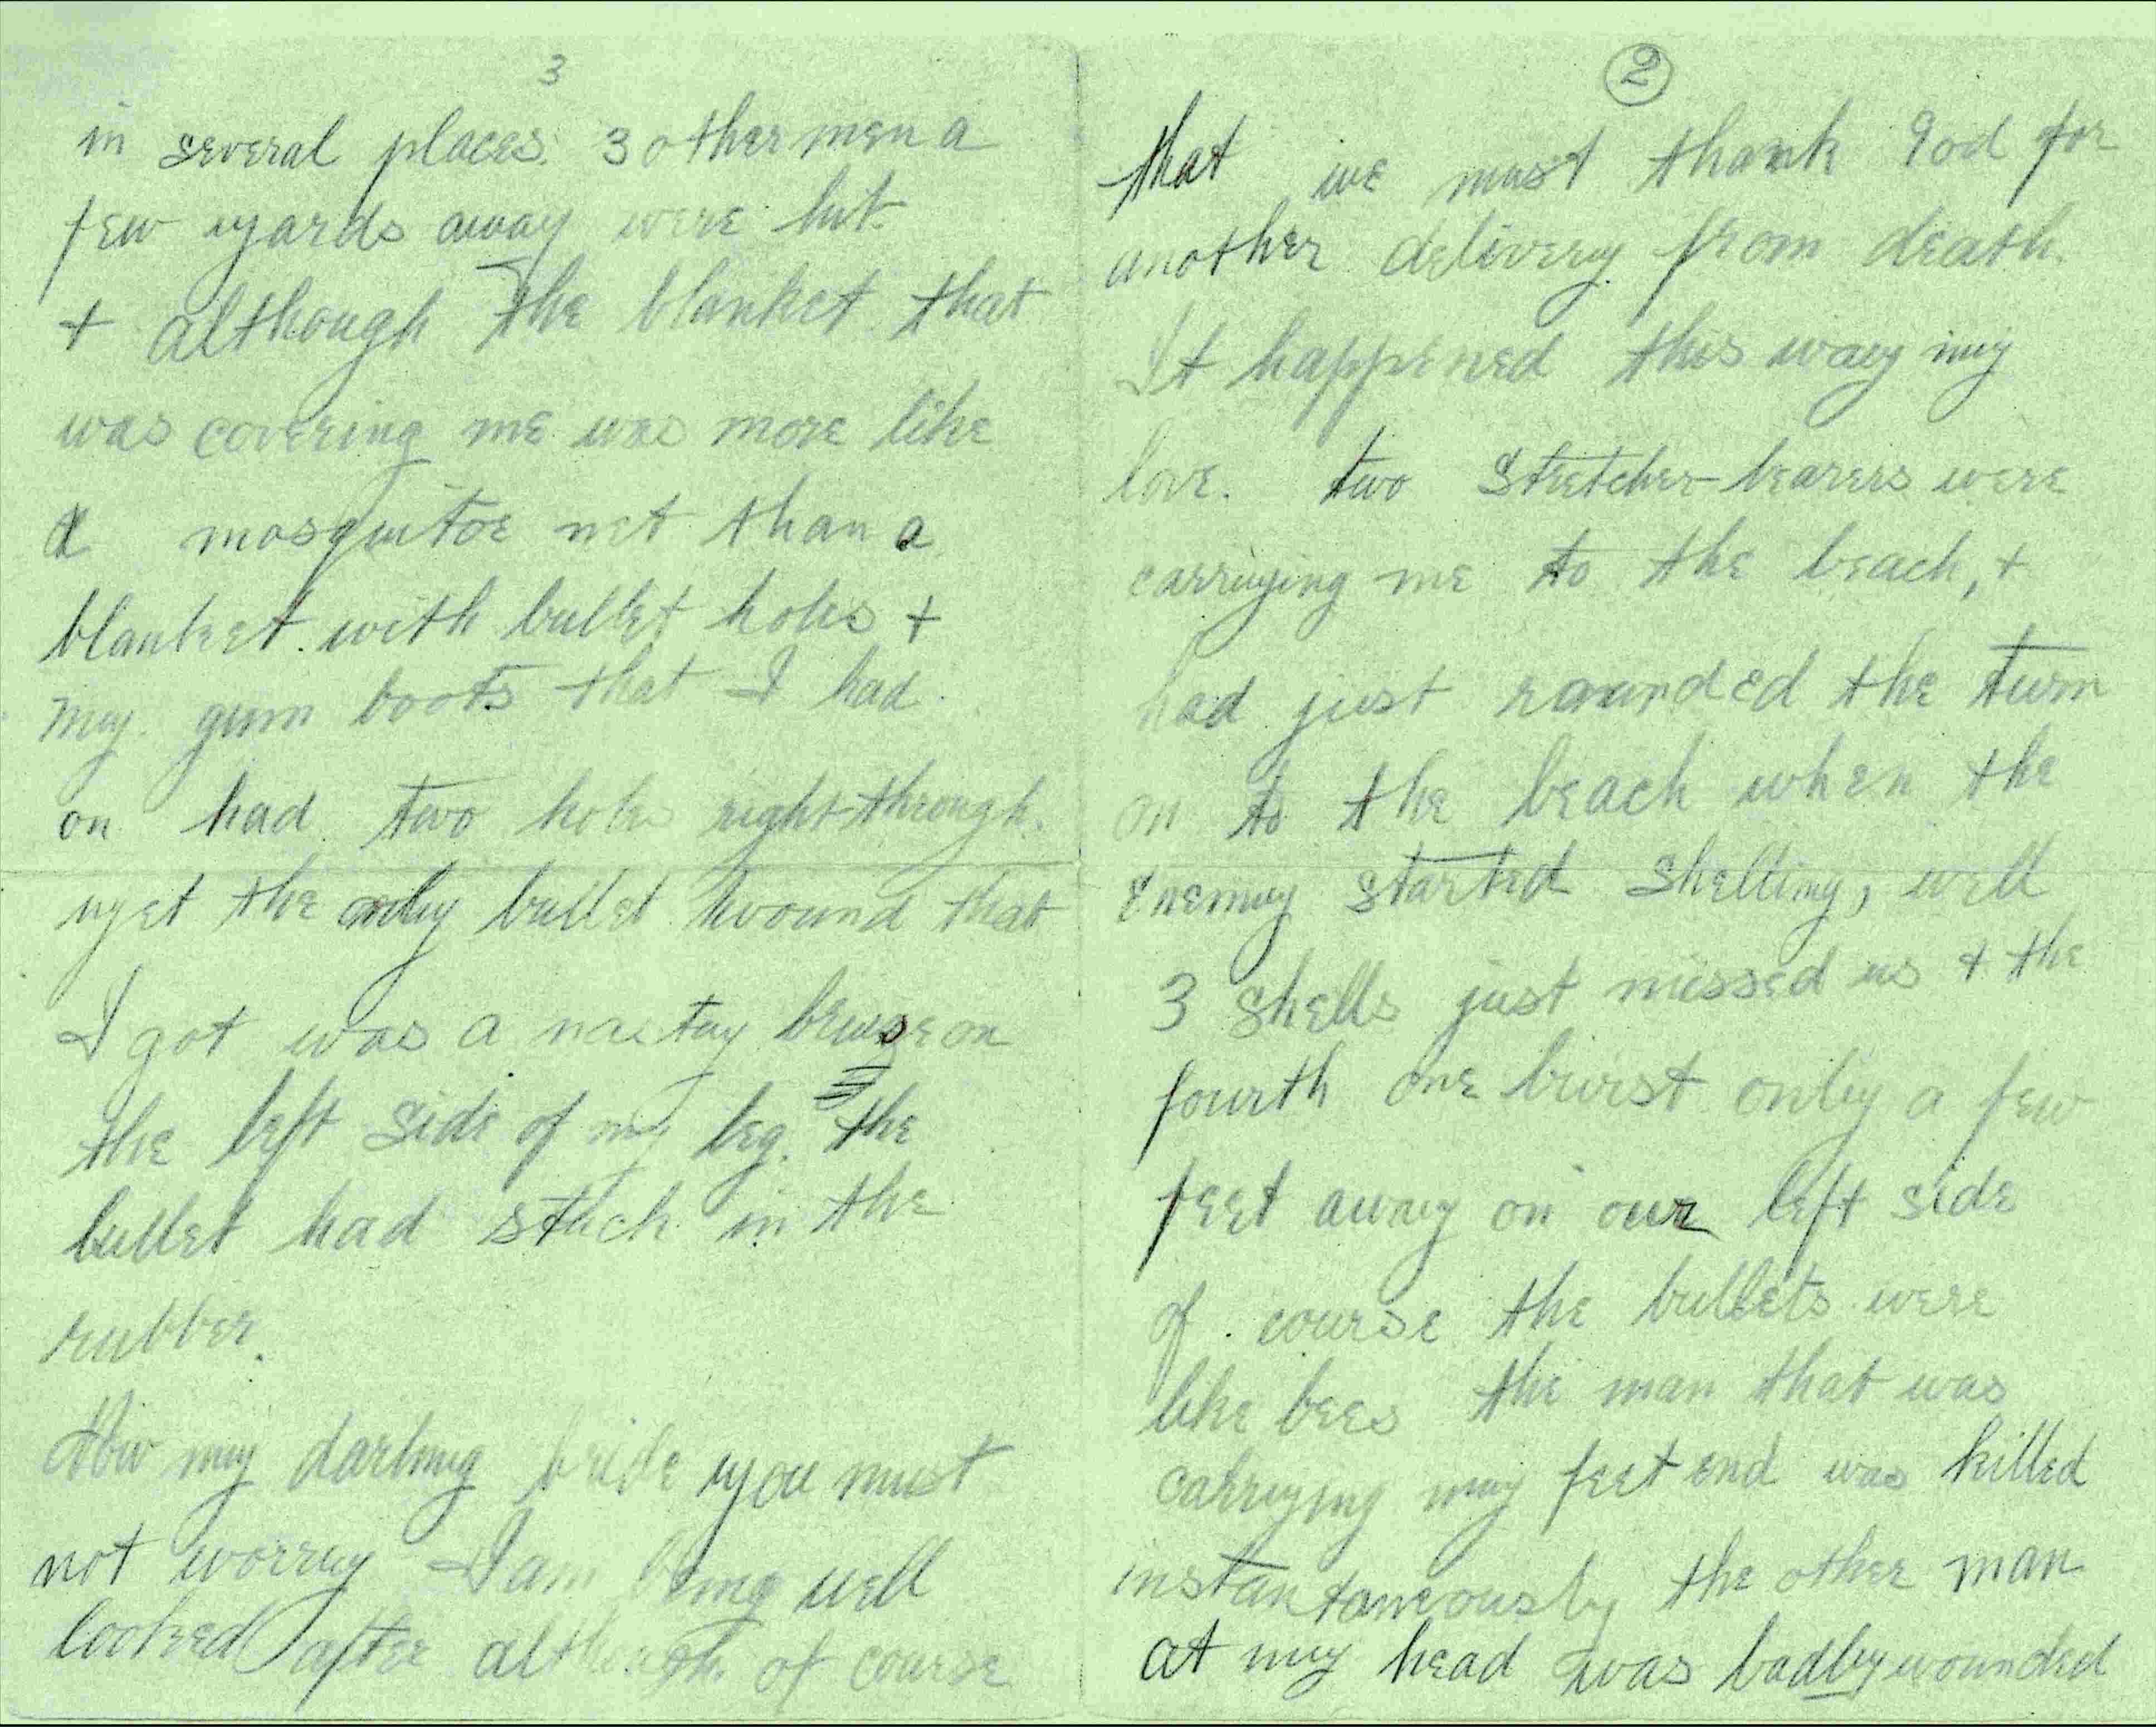 2
that we must thank God for
another delivery from death.
It happened this way my
love. two stretcher-bearers were
carrying me to the beach, +
had just rounded the turn
on to the beach when the
enemy started shelling, well
3 shells just missed us + the
fourth one burst only a few
feet away on our left side
of course the bullets were
like bees the man that was
carrying my feet end was killed
instantaneously the other man
at my head was badly wounded
3
in several places. 3 other men a
few yards away were hit.
+ although the blanket that
was covering me was more like
a mosquitoe net than a
blanket. with bullet holes +
my gum boots that I had
on had two holes right through.
yet the only bullet wound that
I got was a nastay bruse on
the left side of my leg. the
bullet had stuck in the
rubber.
Now my darling bride you must
not worry I am being well
looked after although of course